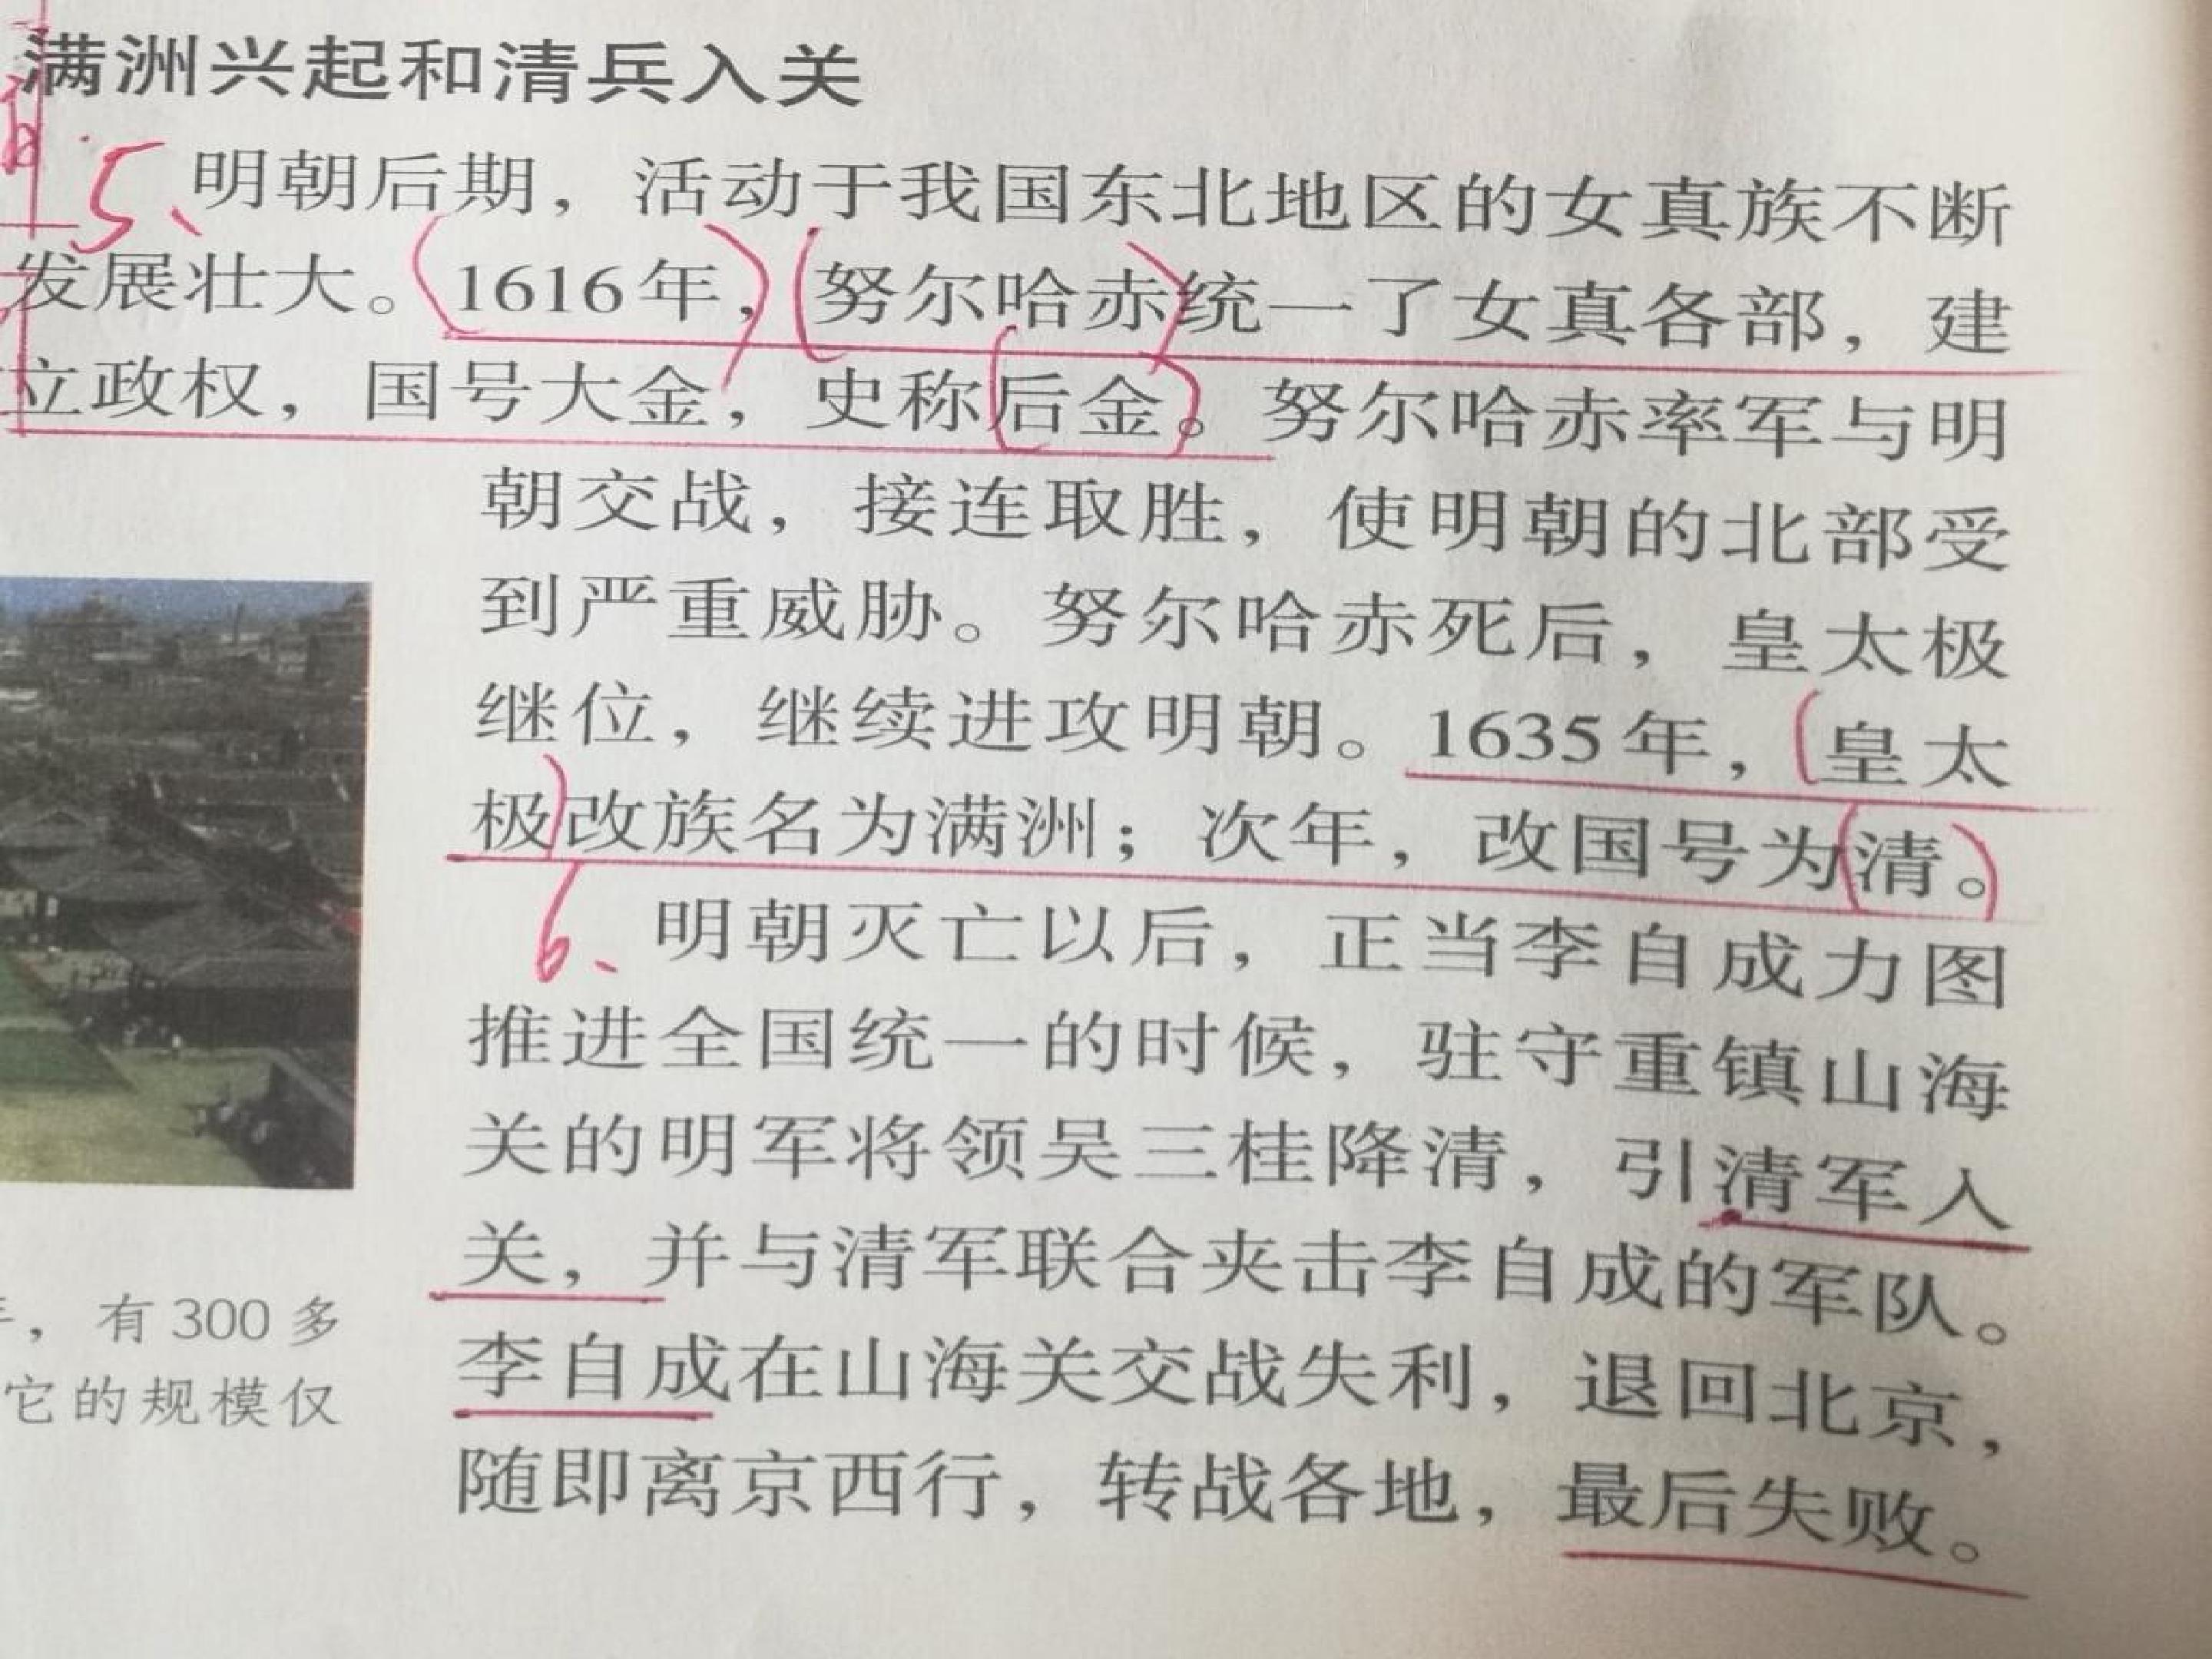 满洲兴起和清兵入关
5、明朝后期，活动于我国东北地区的女真族不断
发展壮大。（1616年，）（努尔哈赤）统一了女真各部，建
立政权，国号大金，史称（后金）。努尔哈赤率军与明
朝交战，接连取胜，使明朝的北部受
到严重威胁。努尔哈赤死后，皇太极
继位，继续进攻明朝。1635年，（皇太
极）改族名为满洲；次年，改国号为（清。）
6、明朝灭亡以后，正当李自成力图
推进全国统一的时候，驻守重镇山海
关的明军将领吴三桂降清，引清军入
关，并与清军联合夹击李自成的军队。
李自成在山海关交战失利，退回北京，
随即离京西行，转战各地，最后失败。
，有300多
它的规模仅